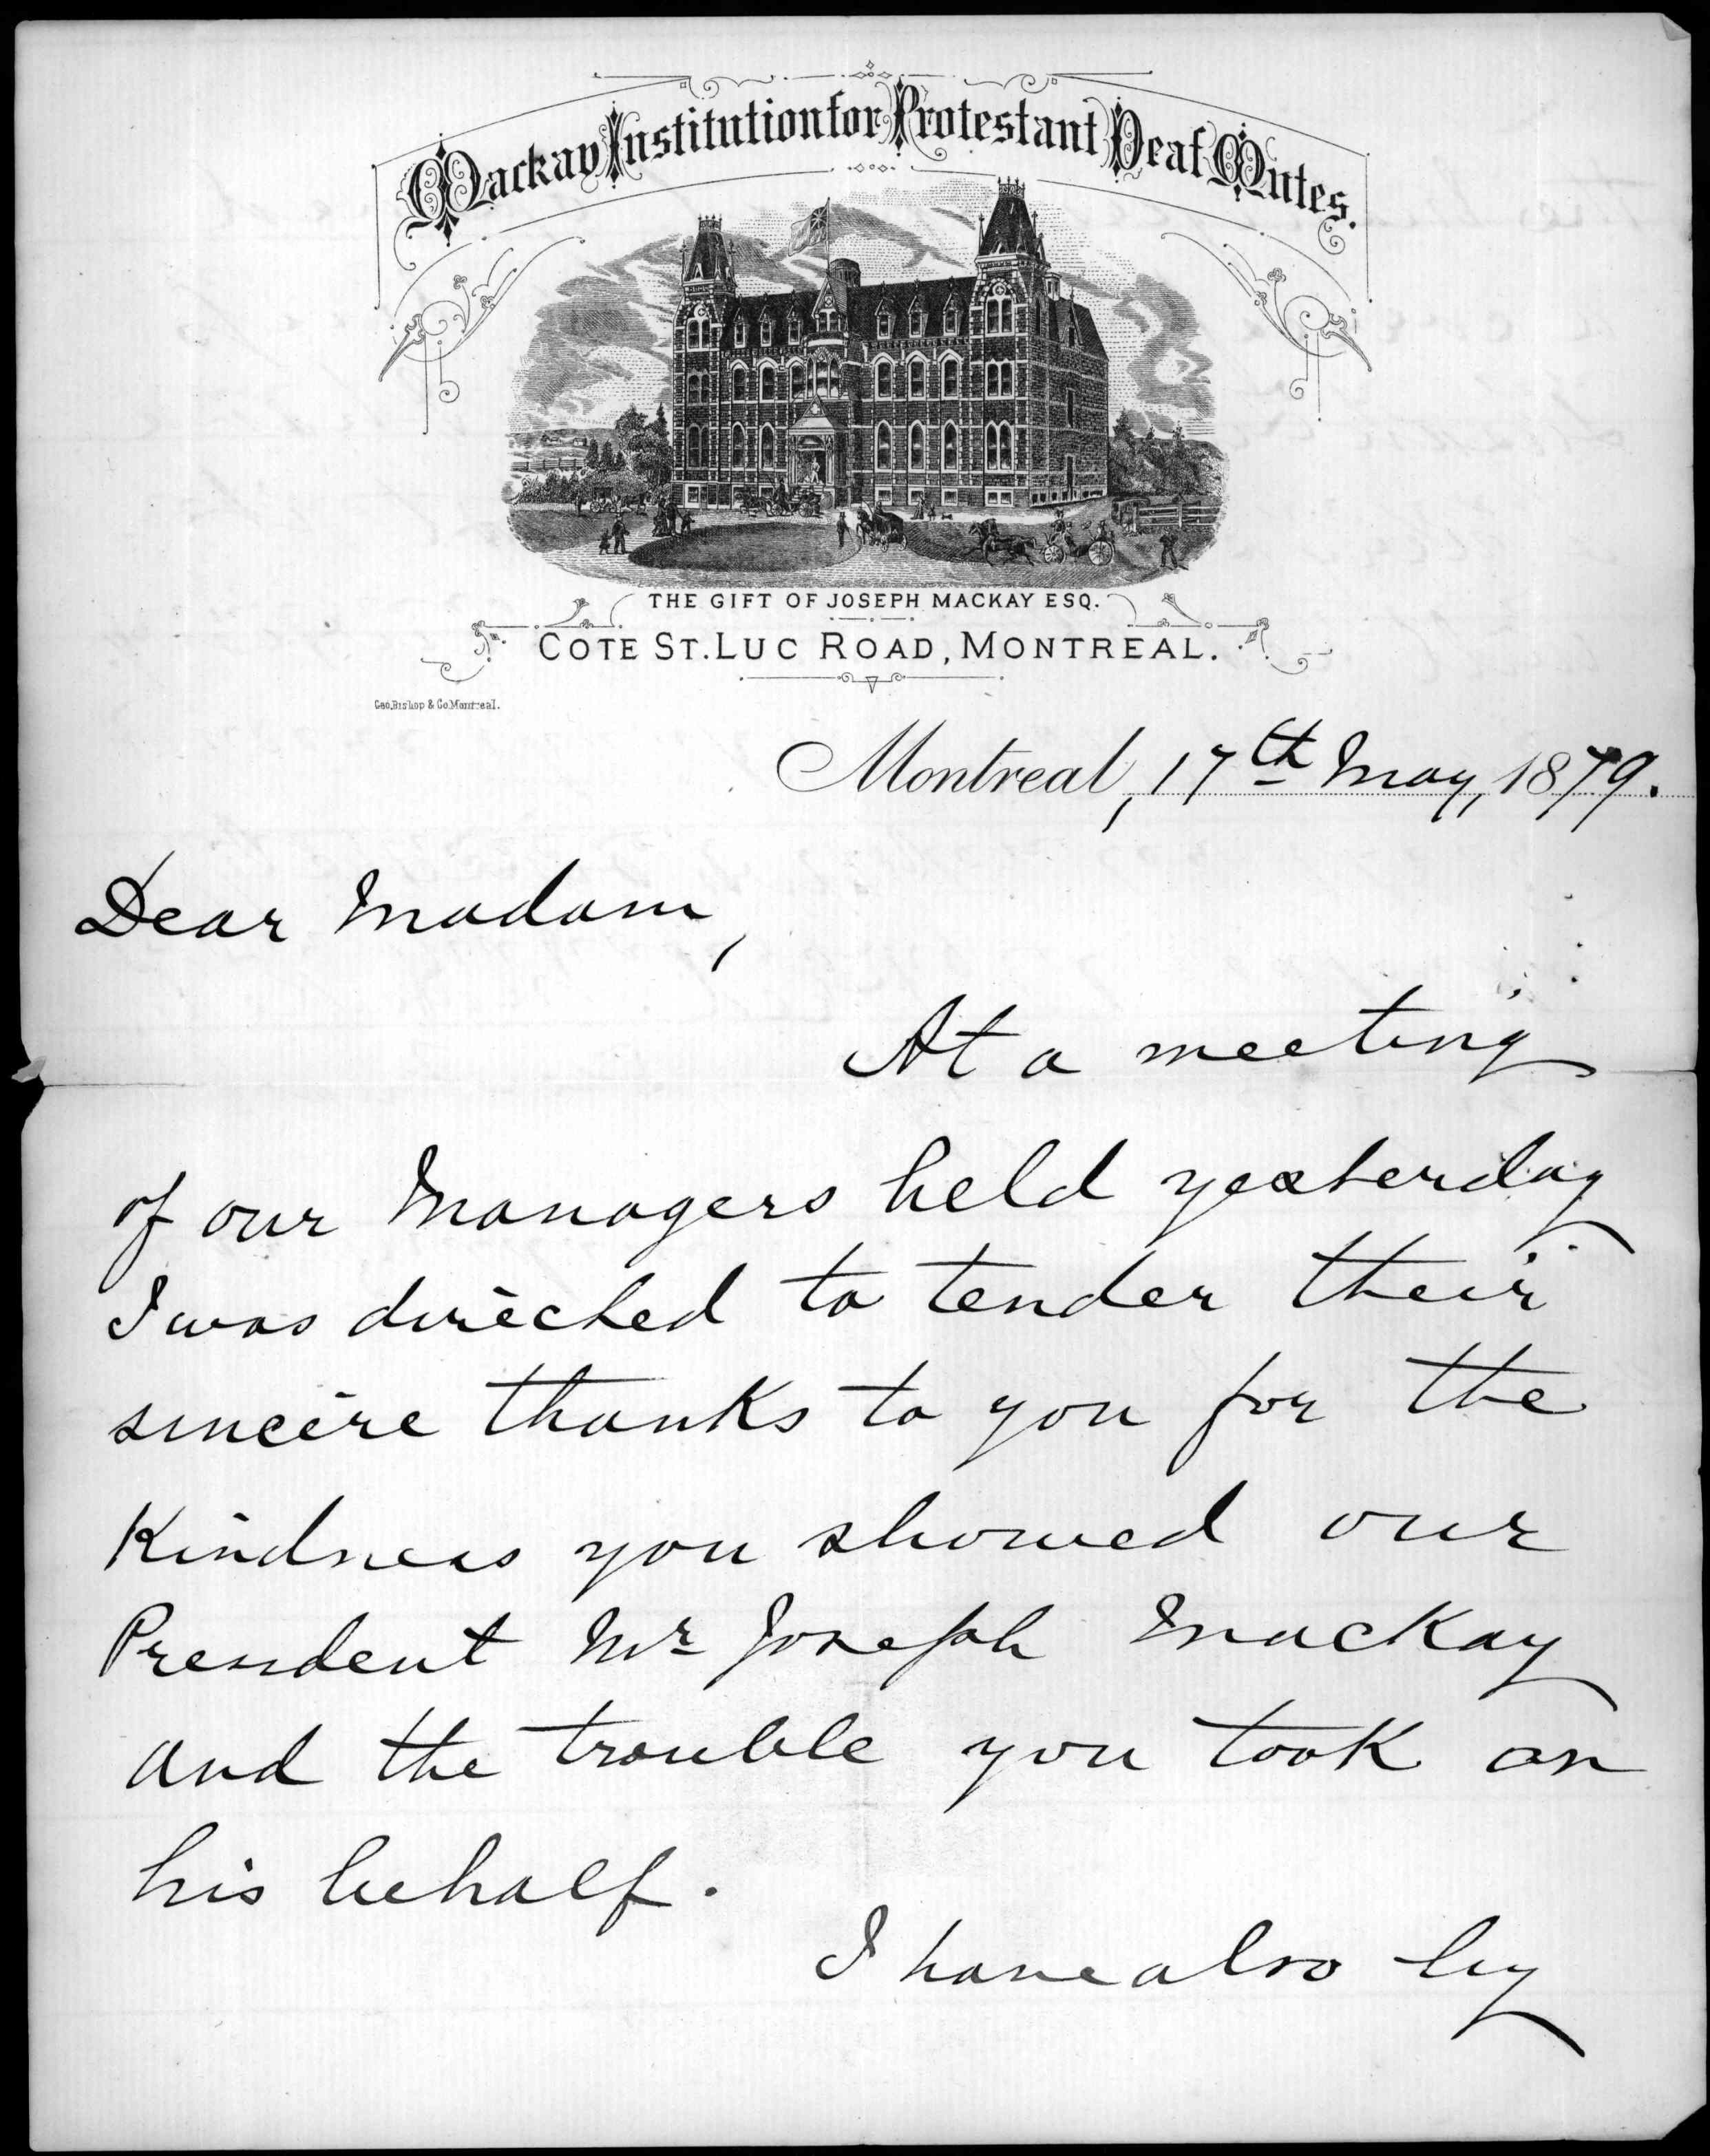 Mackay Institution for Protestant Deaf Mutes.
THE GIFT OF JOSEPH MACKAY ESQ.
COTE ST. LUC ROAD, MONTREAL.
Geo. Bishop & Co. Montreal.
Montreal, 17th May, 1879.
Dear Madam,
At a meeting
of our Managers held yesterday
I was directed to tender their
sincere thanks to you for the
Kindness you showed our
President Mr Joseph Mackay
and the trouble you took on
his behalf.
I have also by